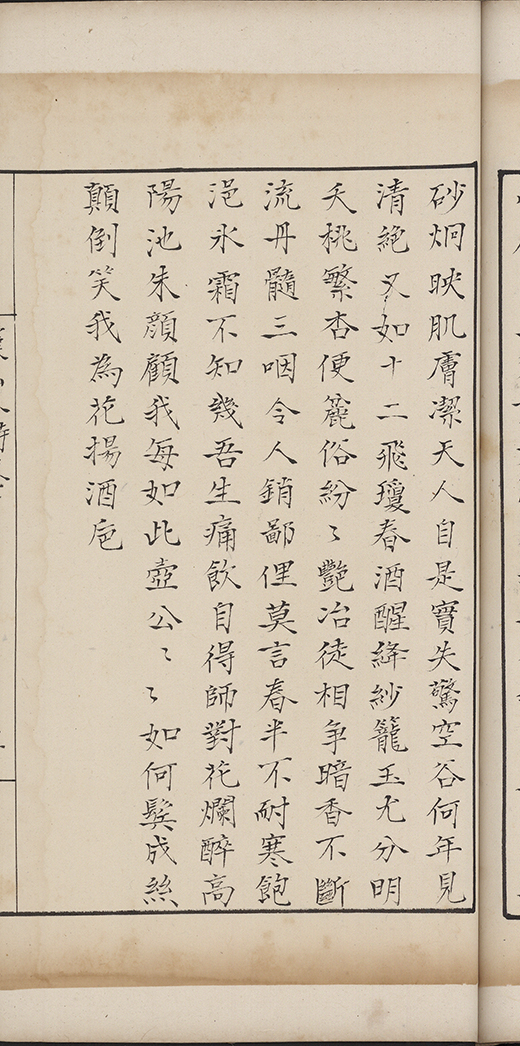 砂炯映肌膚潔天人自是實失驚空谷何年見
清絶又如十二飛瓊春酒醒絳紗籠玉尤分明
夭桃繁杏便麄俗紛〻艷冶徒相争暗香不斷
流丹髓三咽令人銷鄙俚莫言春半不耐寒飽
浥氷霜不知幾吾生痛飲自得師對花爛醉高
陽池朱顔顧我每如此壺公〻〻如何鬓成絲
顛倒笑我為花揚酒巵